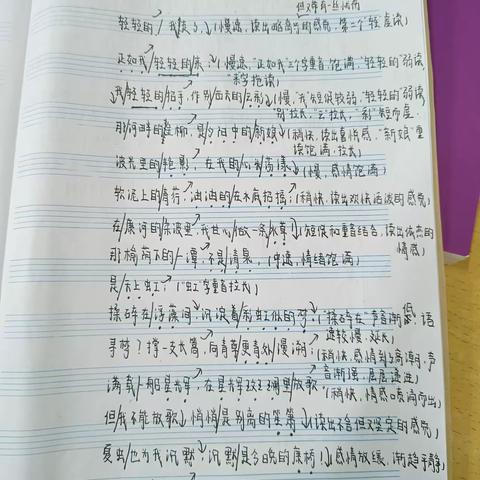 但又带有一丝忧伤
轻轻的/我走了↓(慢速,读出略离别的感觉,第二个"轻轻"虚读)
正如我/轻轻的来;↓(慢速,"正如我"三个字重音,饱满,"轻轻的"弱读,
"来"字拖读)
↓我/轻轻的/招手,作别/西天的/云彩↓(慢,"我"短促较弱,"轻轻的"弱读
"别"拉长,"云"拉长,"彩"短而虚)
那/河畔的/金柳,是/夕阳中的/新娘↓(稍快,读出喜悦感,"新娘"重
读饱满,拉长)
波光里的/艳影,在我的/心头/荡漾↓(慢,感情饱满)
软泥上的/青荇,油油的/在水底招摇;(稍快,读出欢快活泼的感觉)
在/康河的/柔波里,我甘心/做一条/水草!↓(短促和重音结合,读出依恋的
情感)
那榆荫下的/一潭,不是/清泉,(中速,情绪饱满)
是/天上虹;("虹"字重音拉长)
揉碎在/浮藻间,沉淀着/彩虹似的梦↓("揉碎在"声音渐低,语
速较慢,延长)
寻梦?撑一支长篙,向青草/更青处/漫溯;(稍快,感情到高潮,声
音渐强,层层递进)
满载/一船星光军,在星光军斑斓里/放歌(稍快,情感喷涌而出)
但/我不能放歌↓悄悄/是别离的笙箫↓(读出不舍但又坚定的感觉)
夏虫/也为我沉默,沉默/是今晚的康桥!(感情放缓,渐趋于静)